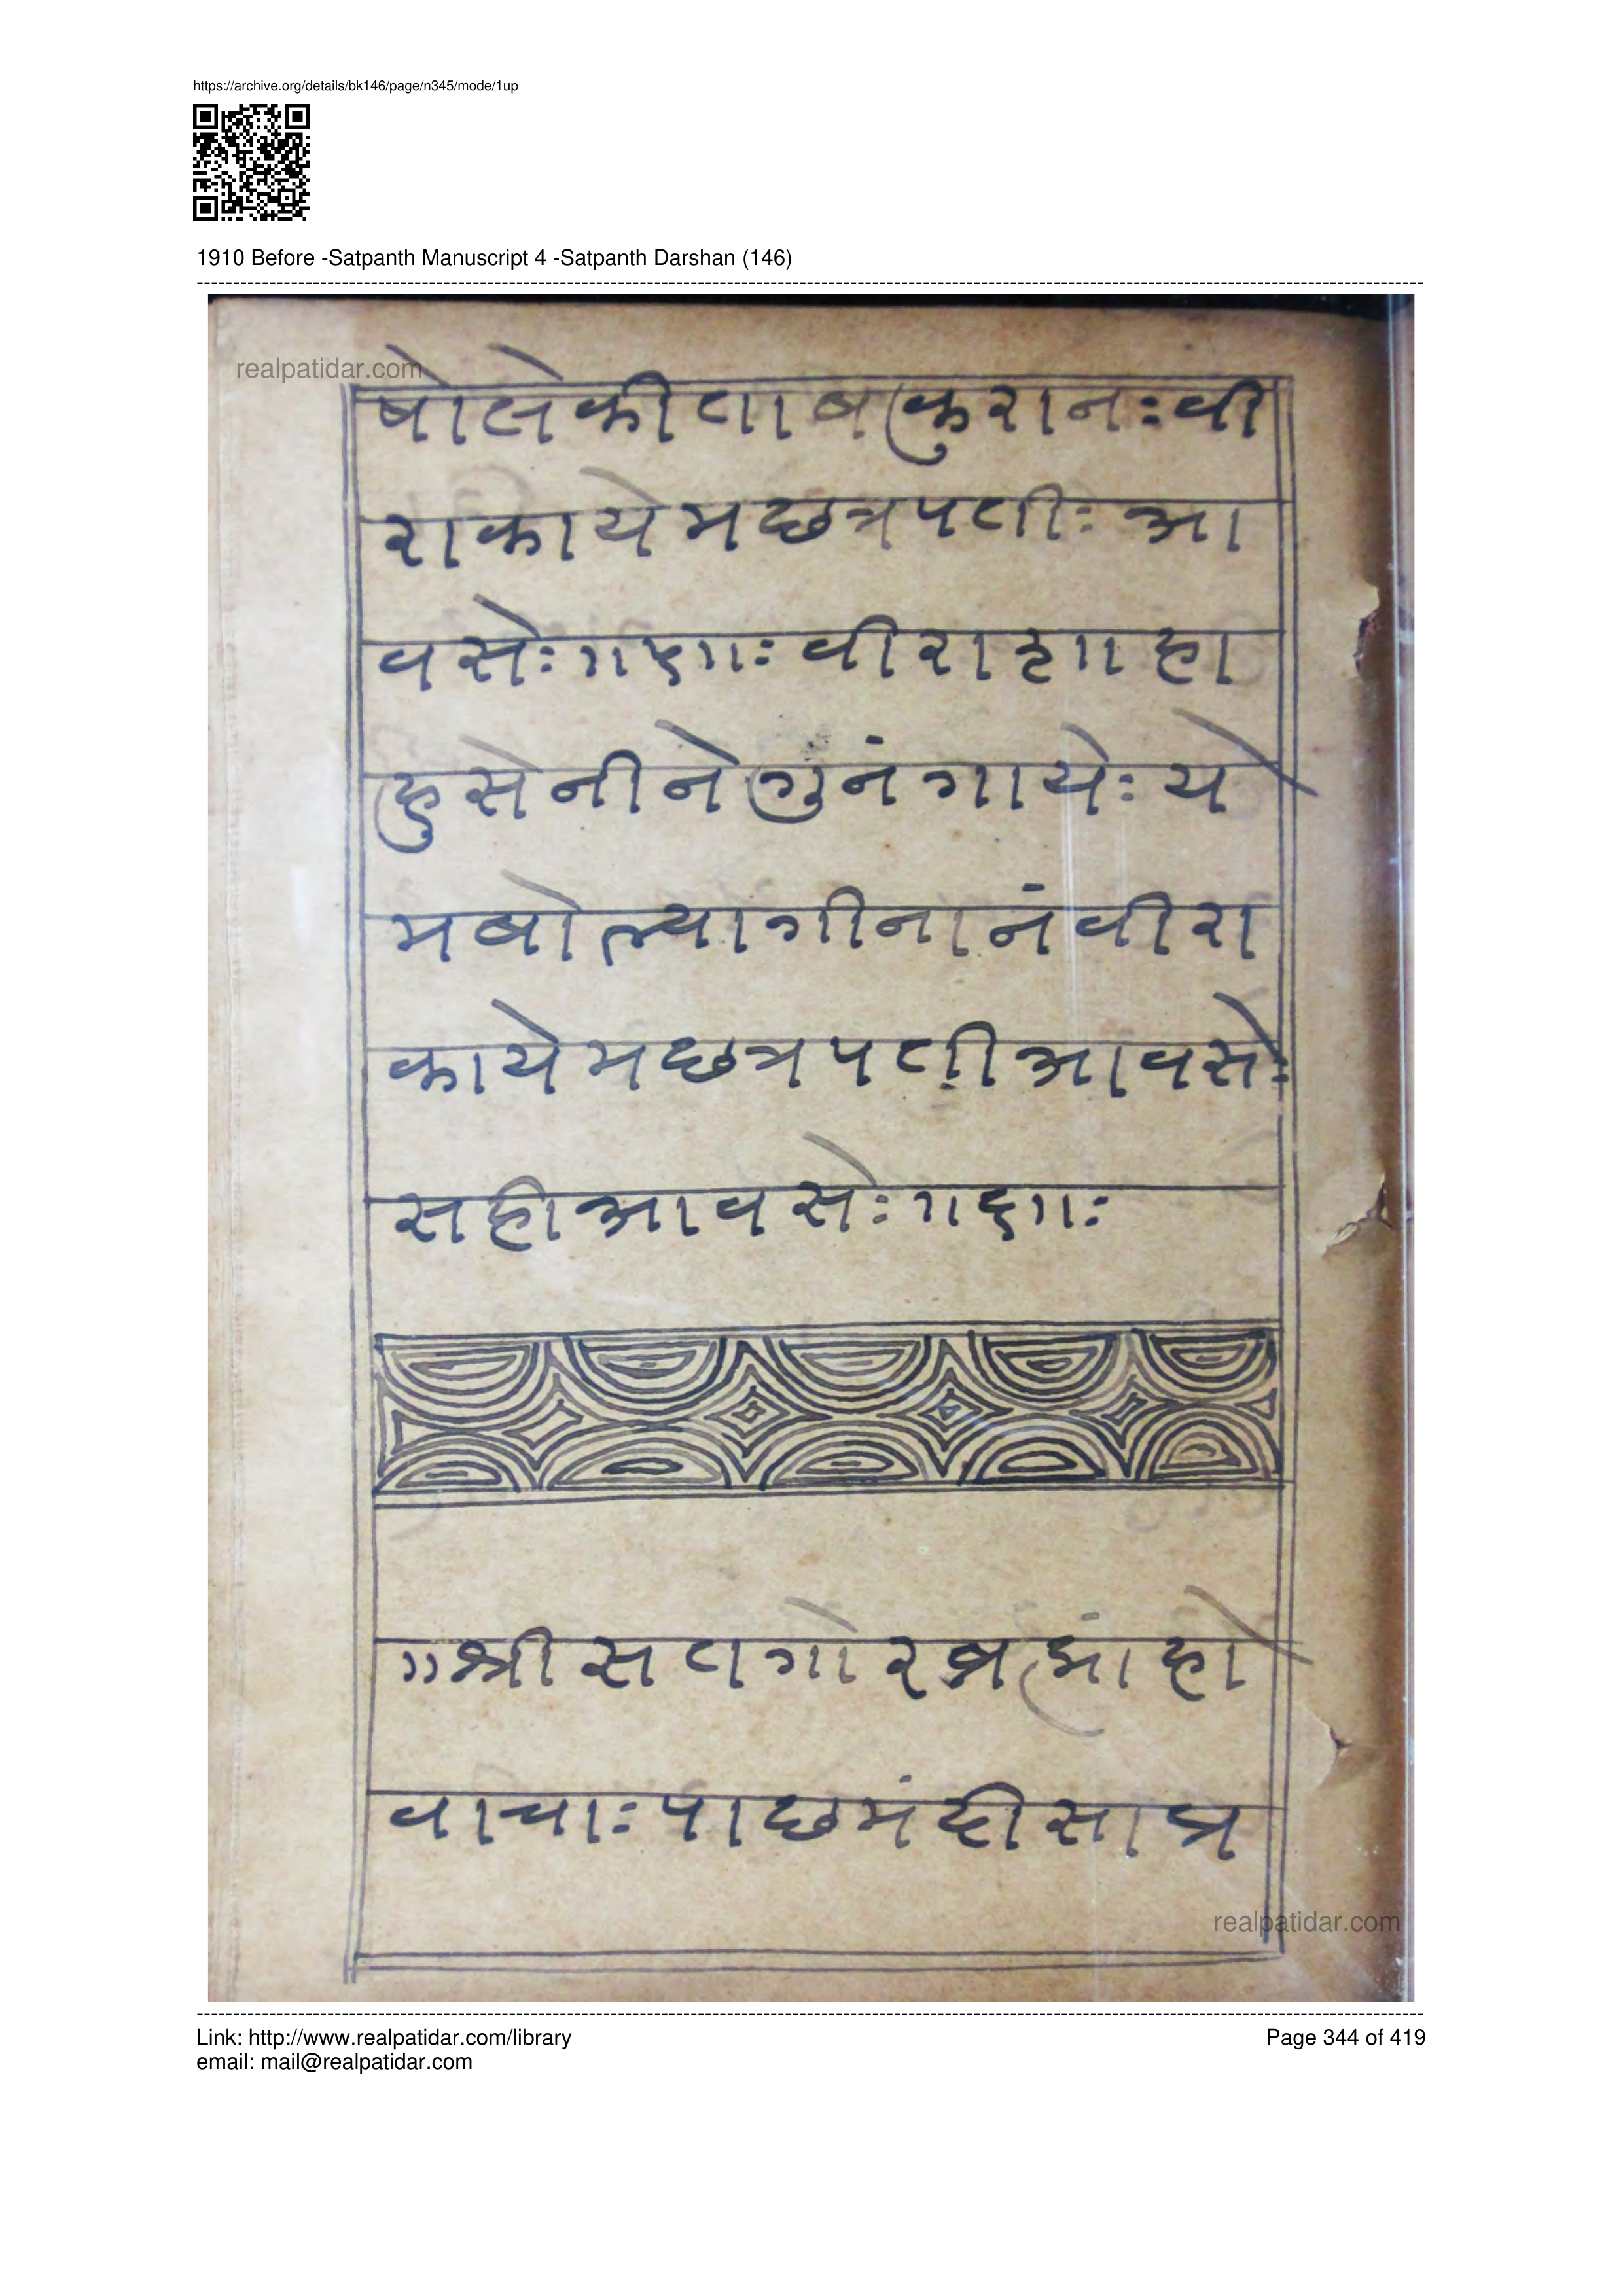 https://archive.org/details/bk146/page/n345/mode/1up
1910 Before -Satpanth Manuscript 4 -Satpanth Darshan (146)
realpatidar.com
बोलेकीताबकुरानःवी
राकायेमछत्रपतीःआ
वसेः॥६॥ःवीरा
हुसेनीनेगुनंगायेःये
मबोल्यागीनानंवीरा
कायेमछत्रपतीआवसेः
सहीआवसेः॥६॥ः
॥श्रीसतगोरब्रह्मांहो
वाचाःपाछमंदीसाप्र
realpatidar.com
Link: http://www.realpatidar.com/library
Page 344 of 419
email: mail@realpatidar.com